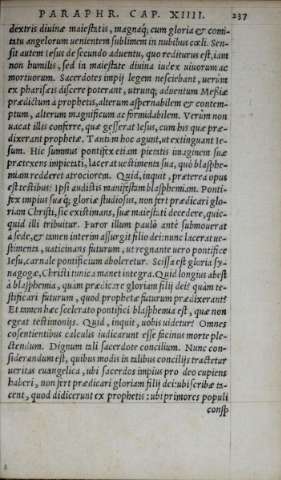 PARAPHR. CAP. XIIII. 237
dextris diuinæ maiestatis, magnaq́; cum gloria & comi-
tatu angelorum uenientem sublimem in nubibus cœli. Sen-
sit autem iesus de secundo aduentu, quo rediturus est, iam
non humilis, sed in maiestate diuina iudex uiuorum ac
mortuorum. Sacerdotes impij legem nesciebant, uerùm
ex pharisæis discere poterant, utrunq; aduentum Messiæ
prædictum à prophetis, alterum aspernabilem & contem-
ptum, alterum magnificum ac formidabilem. Verùm non
uacat illis conferre, quæ gesserat Iesus, cum his quæ præ-
dixerant prophetæ. Tantum hoc agunt, ut extinguant Ie-
sum. Hic summus pontifex etiam pietatis imaginem suæ
prætexens impietati, lacerat uestimenta sua, quò blasphe-
miam redderet atrociorem. Quid, inquit, præterea opus
est testibus? Ipsi audistis manifestam blasphemiam. Ponti-
fex impius suæq́; gloriæ studiosus, non fert prædicari glo-
riam Christi, sic existimans, suæ maiestati decedere, quic-
quid illi tribuitur. Furor illum paulò antè submouerat
à sede, & tamen interim assurgit filio dei: nunc lacerat ue-
stimenta, uaticinans futurum, ut regnante uero pontifice
Iesu, carnale pontificium aboleretur. Scissa est gloria sy-
nagogæ, Christi tunica manet integra. Quid longius abest
à blasphemia, quàm prædicare gloriam filij dei? quàm te-
stificari futurum, quod prophetæ futurum prædixerant?
Et tamen hæc scelerato pontifici blasphemia est, quæ non
egeat testimonijs. Quid, inquit, uobis uidetur? Omnes
cōsentientibus calculis iudicarunt esse facinus morte ple-
ctendum. Dignum tali sacerdote concilium. Nunc con-
siderandum est, quibus modis in talibus concilijs tractetur
ueritas euangelica, ubi sacerdos impius pro deo cupiens
haberi, non fert prædicari gloriam filij dei: ubi scribæ ta-
cent, quod didicerunt ex prophetis: ubi primores populi
consp